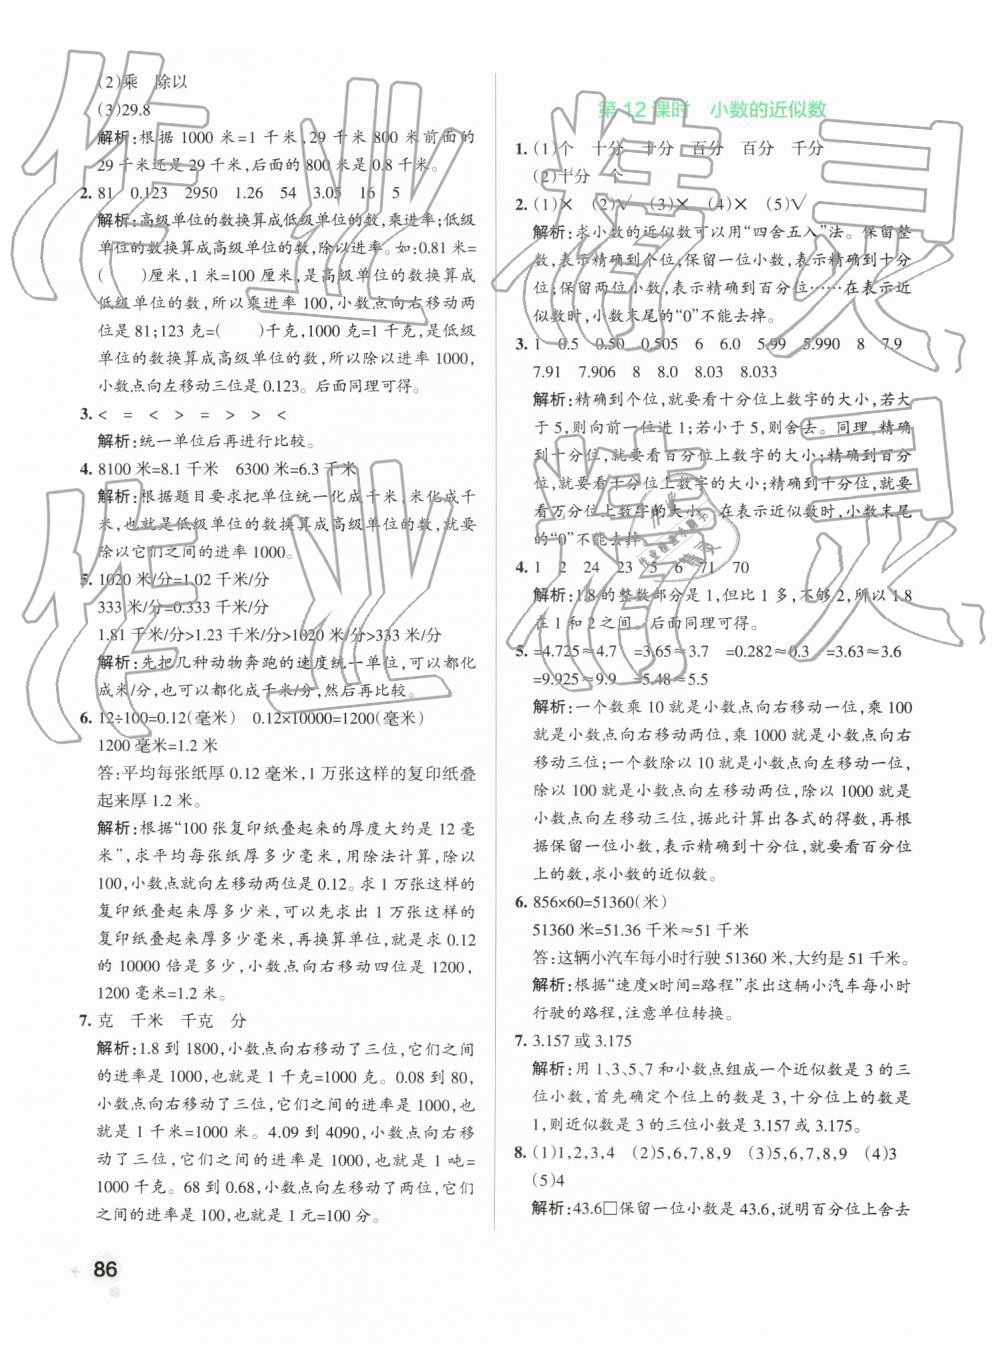 (2)乘　除以
(3)29.8
解析:根据 1000 米=1 千米,29 千米 800 米前面的
29 千米还是 29 千米,后面的 800 米是 0.8 千米。
2. 81　0.123　2950　1.26　54　3.05　16　5
解析:高级单位的数换算成低级单位的数,乘进率;低级
单位的数换算成高级单位的数,除以进率。如:0.81 米=
(　　)厘米,1 米=100 厘米,是高级单位的数换算成
低级单位的数,所以乘进率 100,小数点向右移动两
位是 81;123 克=(　　)千克,1000 克=1 千克,是低级
单位的数换算成高级单位的数,所以除以进率 1000,
小数点向左移动三位是 0.123。后面同理可得。
3. <　=　<　>　=　>　>　<
解析:统一单位后再进行比较。
4. 8100 米=8.1 千米　6300 米=6.3 千米
解析:根据题目要求把单位统一化成千米,米化成千
米,也就是低级单位的数换算成高级单位的数,就要
除以它们之间的进率 1000。
5. 1020 米/分=1.02 千米/分
333 米/分=0.333 千米/分
1.81 千米/分>1.23 千米/分>1020 米/分>333 米/分
解析:先把几种动物奔跑的速度统一单位,可以都化
成米/分,也可以都化成千米/分,然后再比较。
6. 12÷100=0.12(毫米)　0.12×10000=1200(毫米)
1200 毫米=1.2 米
答:平均每张纸厚 0.12 毫米,1 万张这样的复印纸叠
起来厚 1.2 米。
解析:根据“100 张复印纸叠起来的厚度大约是 12 毫
米”,求平均每张纸厚多少毫米,用除法计算,除以
100,小数点就向左移动两位是 0.12。求 1 万张这样的
复印纸叠起来厚多少米,可以先求出 1 万张这样的
复印纸叠起来厚多少毫米,再换算单位,就是求 0.12
的 10000 倍是多少,小数点向右移动四位是 1200,
1200 毫米=1.2 米。
7. 克　千米　千克　分
解析:1.8 到 1800,小数点向右移动了三位,它们之间
的进率是 1000,也就是 1 千克=1000 克。0.08 到 80,
小数点向右移动了三位,它们之间的进率是 1000,也
就是 1 千米=1000 米。4.09 到 4090,小数点向右移
动了三位,它们之间的进率是 1000,也就是 1 吨=
1000 千克。68 到 0.68,小数点向左移动了两位,它们
之间的进率是 100,也就是 1 元=100 分。
86
第 12 课时　小数的近似数
1. (1)个　十分　十分　百分　百分　千分
(2)十分　个
2. (1)×　(2)√　(3)×　(4)×　(5)√
解析:求小数的近似数可以用“四舍五入”法。保留整
数,表示精确到个位;保留一位小数,表示精确到十分
位;保留两位小数,表示精确到百分位……在表示近
似数时,小数末尾的“0”不能去掉。
3. 1　0.5　0.50　0.505　6　6.0　5.99　5.990　8　7.9
7.91　7.906　8　8.0　8.03　8.033
解析:精确到个位,就要看十分位上数字的大小,若大
于 5,则向前一位进 1;若小于 5,则舍去。同理,精确
到十分位,就要看百分位上数字的大小;精确到百分
位,就要看千分位上数字的大小;精确到千分位,就要
看万分位上数字的大小。在表示近似数时,小数末尾
的“0”不能去掉。
4. 1　2　24　23　5　6　71　70
解析:1.8 的整数部分是 1,但比 1 多,不够 2,所以 1.8
在 1 和 2 之间。后面同理可得。
5. =4.725≈4.7　=3.65≈3.7　=0.282≈0.3　=3.63≈3.6
=9.925≈9.9　=5.48≈5.5
解析:一个数乘 10 就是小数点向右移动一位,乘 100
就是小数点向右移动两位,乘 1000 就是小数点向右
移动三位;一个数除以 10 就是小数点向左移动一位,
除以 100 就是小数点向左移动两位,除以 1000 就是
小数点向左移动三位,据此计算出各式的得数,再根
据保留一位小数,表示精确到十分位,就要看百分位
上的数,求小数的近似数。
6. 856×60=51360(米)
51360 米=51.36 千米≈51 千米
答:这辆小汽车每小时行驶 51360 米,大约是 51 千米。
解析:根据“速度×时间=路程”求出这辆小汽车每小时
行驶的路程,注意单位转换。
7. 3.157 或 3.175
解析:用 1、3、5、7 和小数点组成一个近似数是 3 的三
位小数,首先确定个位上的数是 3,十分位上的数是
1,则近似数是 3 的三位小数是 3.157 或 3.175。
8. (1)1,2,3,4　(2)5,6,7,8,9　(3)5,6,7,8,9　(4)3
(5)4
解析:43.6□保留一位小数是 43.6,说明百分位上舍去
作业精灵
作业精灵